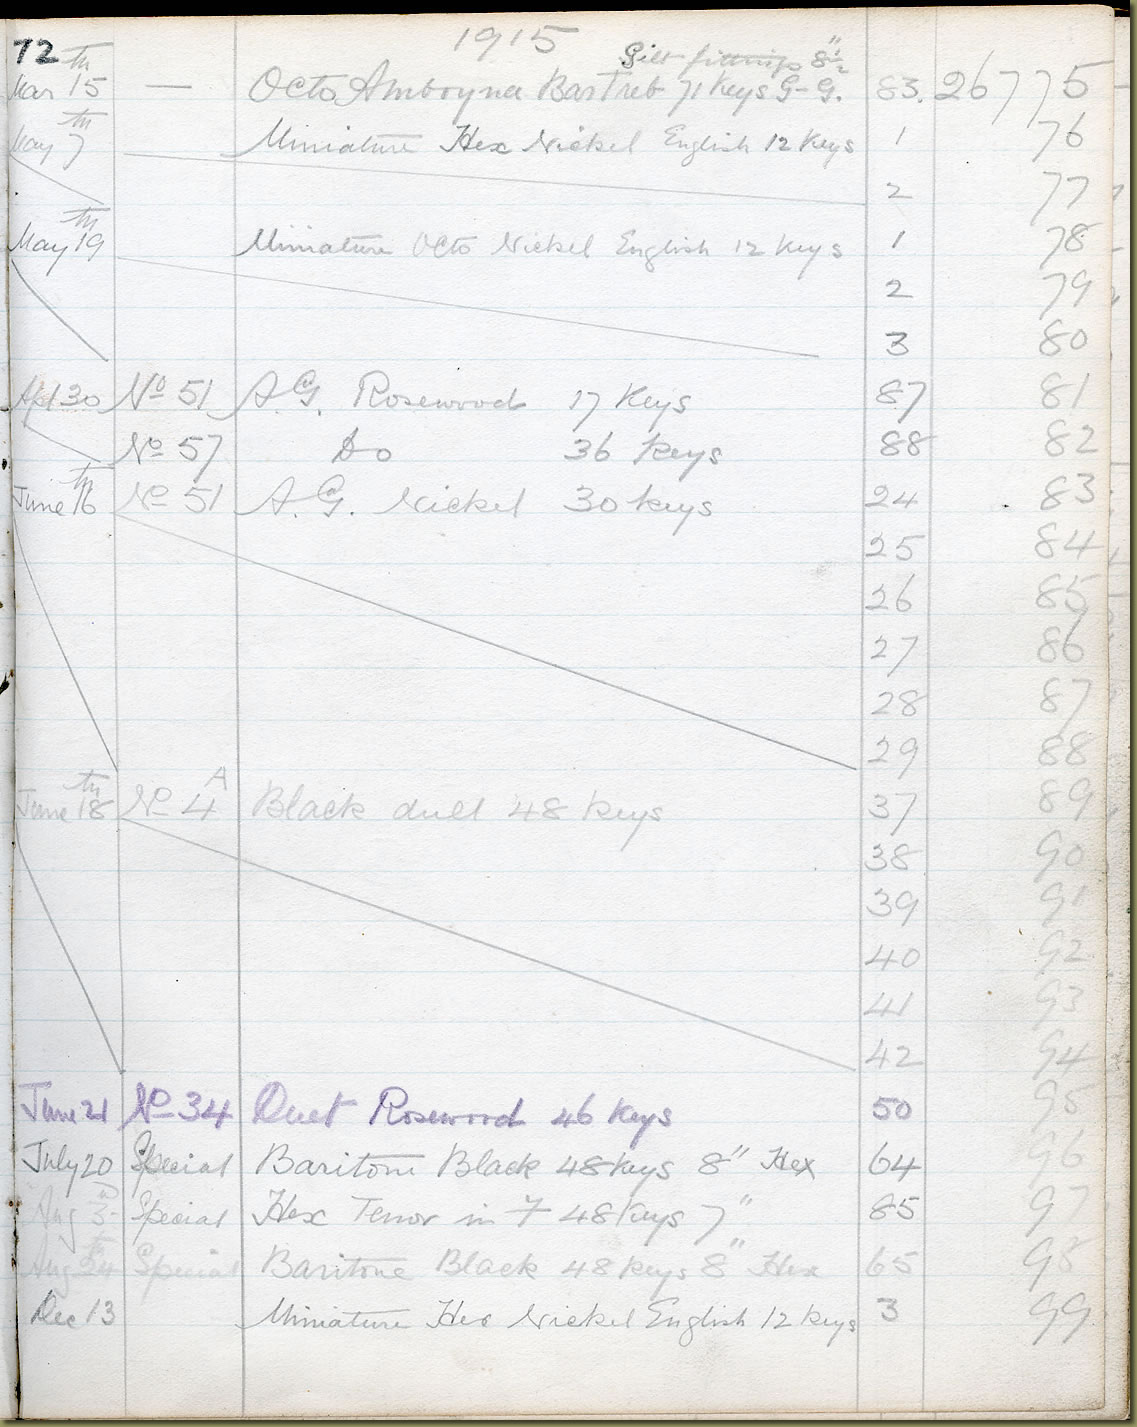 72
1915
Gilt fittings 8½"
Mar 15th — Octo Amboyna Bar Treb 71 Keys G-G. 83. 26775
May 7th Miniature Hex Nickel English 12 Keys 1 76
2 77
May 19th Miniature Octo Nickel English 12 Keys 1 78
2 79
3 80
Apl 30 No 51 A.G. Rosewood 17 Keys 87 81
No 57 Do 36 Keys 88 82
June 16th No 51 A.G. Nickel 30 Keys 24 83
25 84
26 85
27 86
28 87
29 88
June 18th No 4A Black dull 48 Keys 37 89
38 90
39 91
40 92
41 93
42 94
June 21 No 34 Duet Rosewood 46 Keys 50 95
July 20 Special Baritone Black 48 Keys 8" Hex 64 96
Aug 3rd Special Hex Tenor in F 48 Keys 7" 85 97
Aug 24th Special Baritone Black 48 Keys 8" Hex 65 98
Dec 13 Miniature Hex Nickel English 12 Keys 3 99